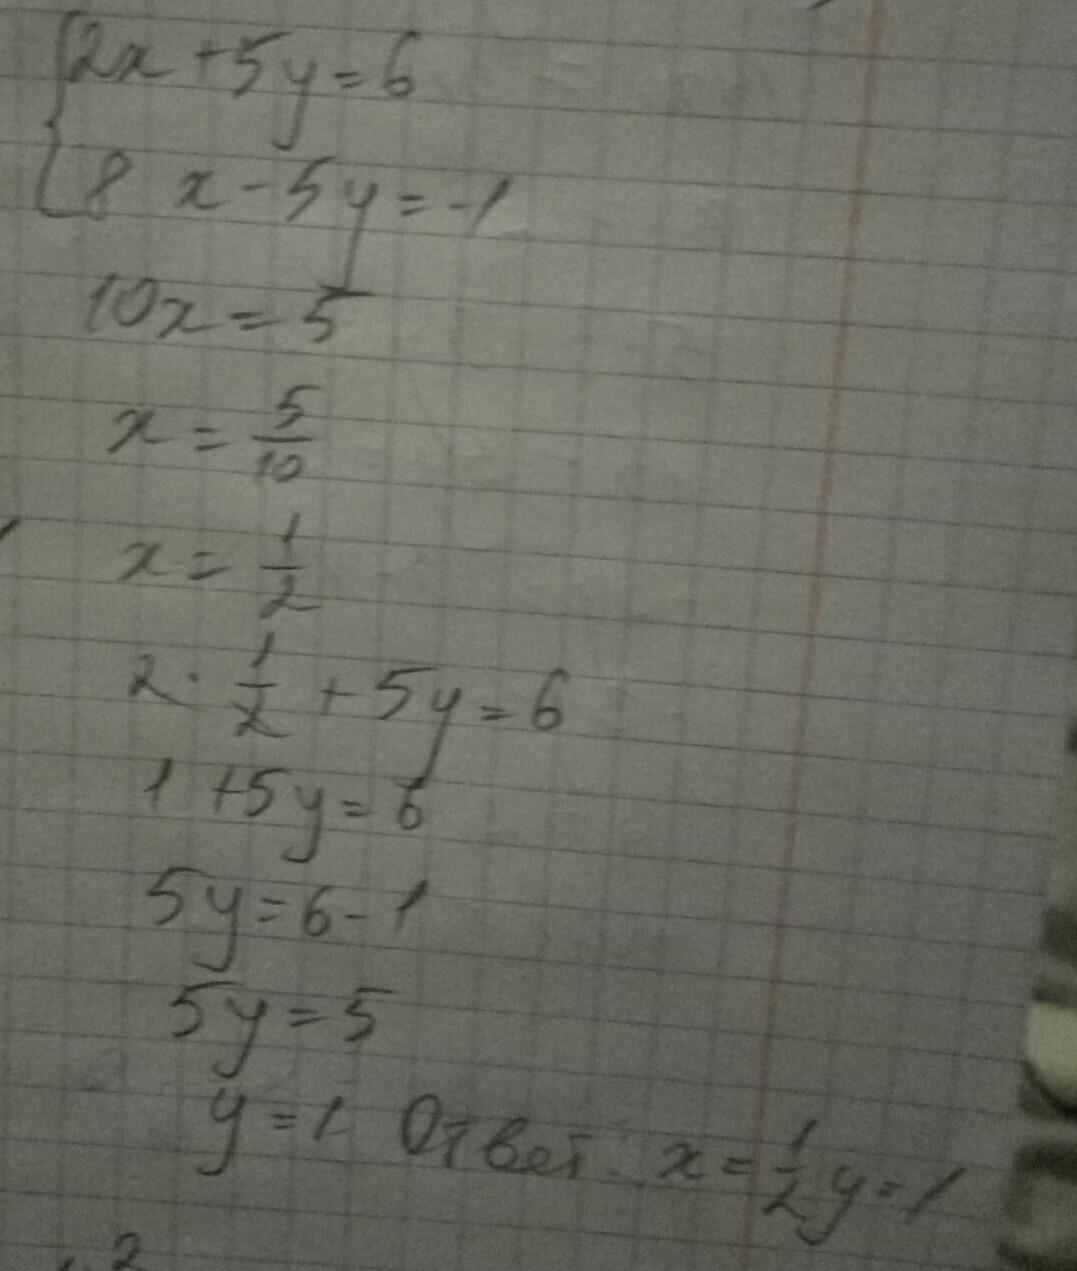 {2x + 5y = 6
8x - 5y = -1
10x = 5
x = 5/10
x = 1/2
2 · 1/2 + 5y = 6
1 + 5y = 6
5y = 6 - 1
5y = 5
y = 1 Ответ: x = 1/2 y = 1
2